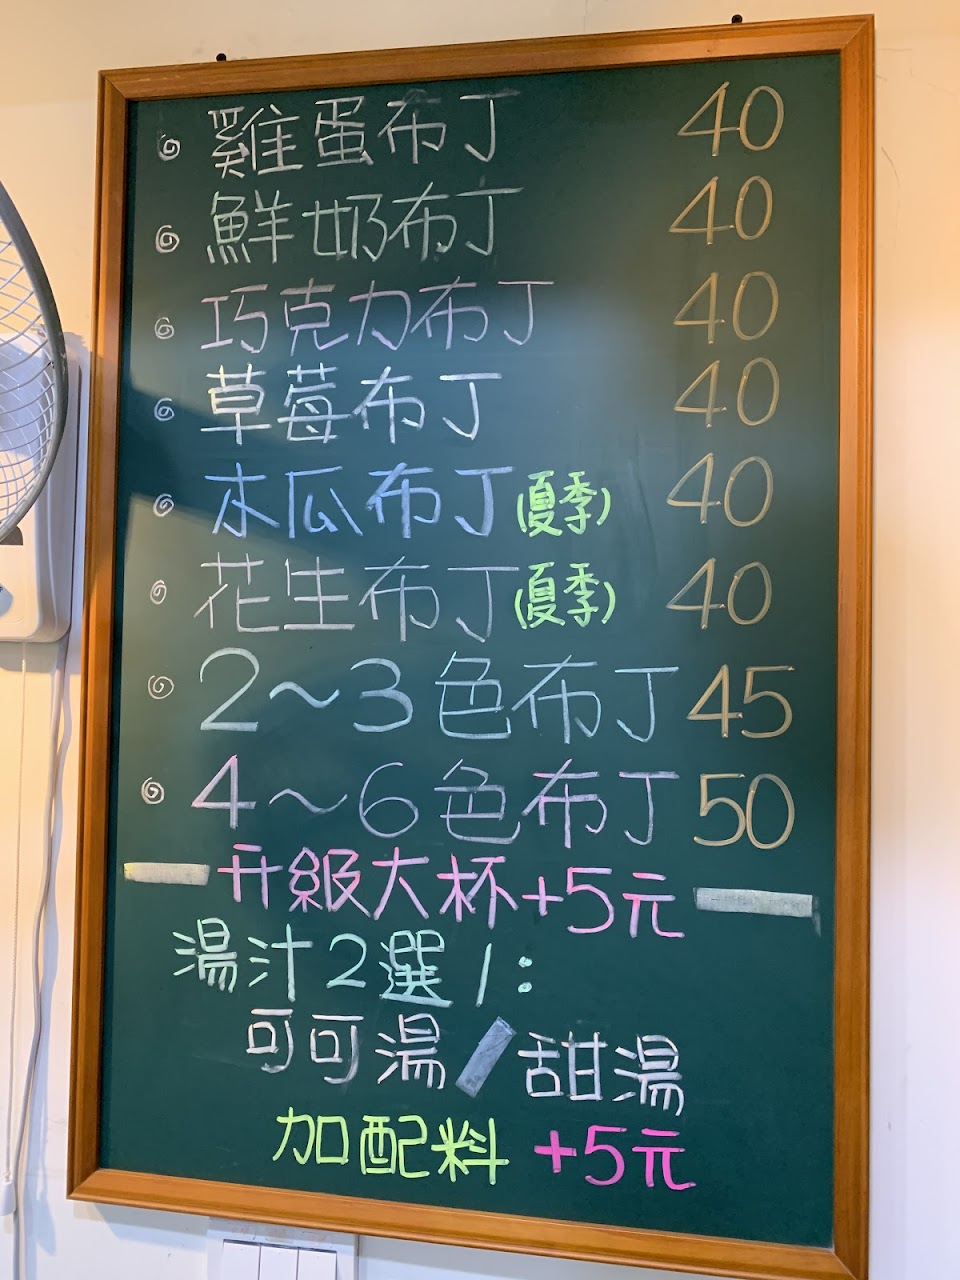 雞蛋布丁 40
鮮奶布丁 40
巧克力布丁 40
草莓布丁 40
木瓜布丁(夏季) 40
花生布丁(夏季) 40
2~3色布丁 45
4~6色布丁 50
升級大杯+5元
湯汁2選1:
可可湯/甜湯
加配料 +5元